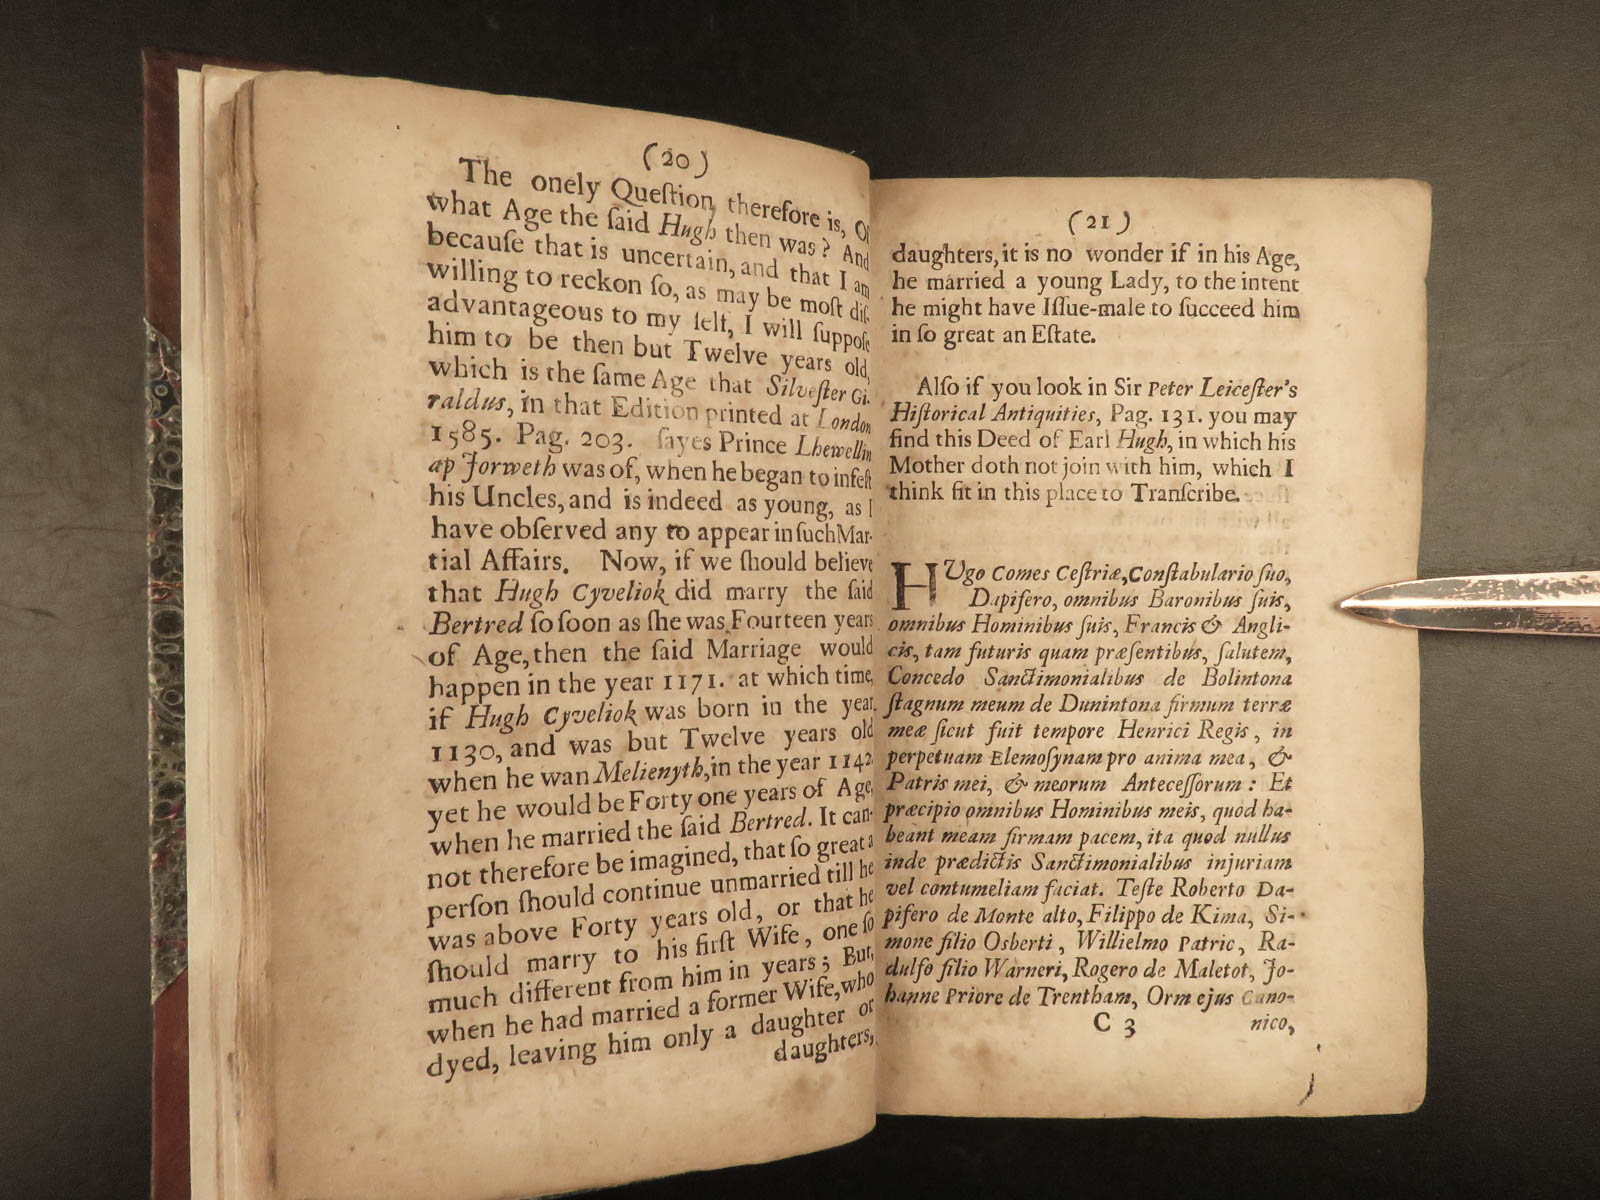 (20)
The onely Queſtion therefore is, Of
what Age the ſaid Hugh then was? And
becauſe that is uncertain, and that I am
willing to reckon ſo, as may be moſt diſ-
advantageous to my ſelf, I will ſuppoſe
him to be then but Twelve years old,
which is the ſame Age that Silveſter Gi-
raldus, in that Edition printed at London
1585. Pag. 203. ſayes Prince Lhewellin
ap Jorweth was of, when he began to infeſt
his Uncles, and is indeed as young, as I
have obſerved any to appear in ſuch Mar-
tial Affairs. Now, if we ſhould believe
that Hugh Cyveliok did marry the ſaid
Bertred ſo ſoon as ſhe was Fourteen years
of Age, then the ſaid Marriage would
happen in the year 1171. at which time,
if Hugh Cyveliok was born in the year
1130, and was but Twelve years old
when he wan Melienyth, in the year 1142
yet he would be Forty one years of Age,
when he married the ſaid Bertred. It can-
not therefore be imagined, that ſo great a
perſon ſhould continue unmarried till he
was above Forty years old, or that he
ſhould marry to his firſt Wife, one ſo
much different from him in years; But,
when he had married a former Wife, who
dyed, leaving him only a daughter or
daughters,
(21)
daughters, it is no wonder if in his Age,
he married a young Lady, to the intent
he might have Iſſue-male to ſucceed him
in ſo great an Eſtate.
Alſo if you look in Sir Peter Leiceſter's
Hiſtorical Antiquities, Pag. 131. you may
find this Deed of Earl Hugh, in which his
Mother doth not join with him, which I
think fit in this place to Tranſcribe.
HUgo Comes Ceſtriæ, Conſtabulario ſuo,
Dapifero, omnibus Baronibus ſuis,
omnibus Hominibus ſuis, Francis & Angli-
cis, tam futuris quam præſentibus, ſalutem,
Concedo Sanctimonialibus de Bolintona
ſtagnum meum de Dunintona firmum terræ
meæ ſicut fuit tempore Henrici Regis, in
perpetuam Elemoſynam pro anima mea, &
Patris mei, & meorum Anteceſſorum: Et
præcipio omnibus Hominibus meis, quod ha-
beant meam firmam pacem, ita quod nullus
inde prædictis Sanctimonialibus injuriam
vel contumeliam faciat. Teſte Roberto Da-
pifero de Monte alto, Filippo de Kima, Si-
mone filio Osberti, Willielmo Patric, Ra-
dulfo filio Warneri, Rogero de Maletot, Jo-
hanne Priore de Trentham, Orm ejus Cano-
C 3
nico,